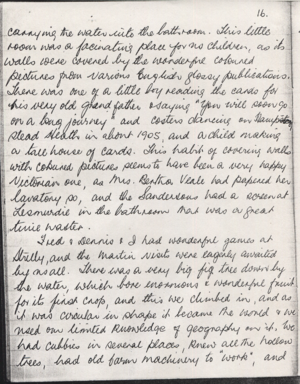 16.
carrying the water into the bathroom. This little
room was a facinating place for us children, as its
walls were covered by the wonderful coloured
pictures from various English glossy publications.
There was one of a little boy reading the cards for
his very old grandfather & saying "you will soon go
on a long journey" and costers dancing on Hampstead
Heath in about 1905, and a child making
a tall house of cards. This habit of covering walls
with coloured pictures seems to have been a very happy
Victorian one, as Mrs. Bertha Veale had papered her
lavatory so, and the Sandersons had a screen at
Lesmurdie in the bathroom that was a great
time waster.
Fred & Dennis & I had wonderful games at
Strelly, and the Martin visits were eagerly awaited
by us all. There was a very big fig tree down by
the water, which bore enormous & wonderful fruit
for its first crop, and this we climbed in, and as
it was circular in shape it became the world & we
used our limited knowledge of geography on it. We
had cubbies in several places, knew all the hollow
trees, had old farm machinery to "work", and